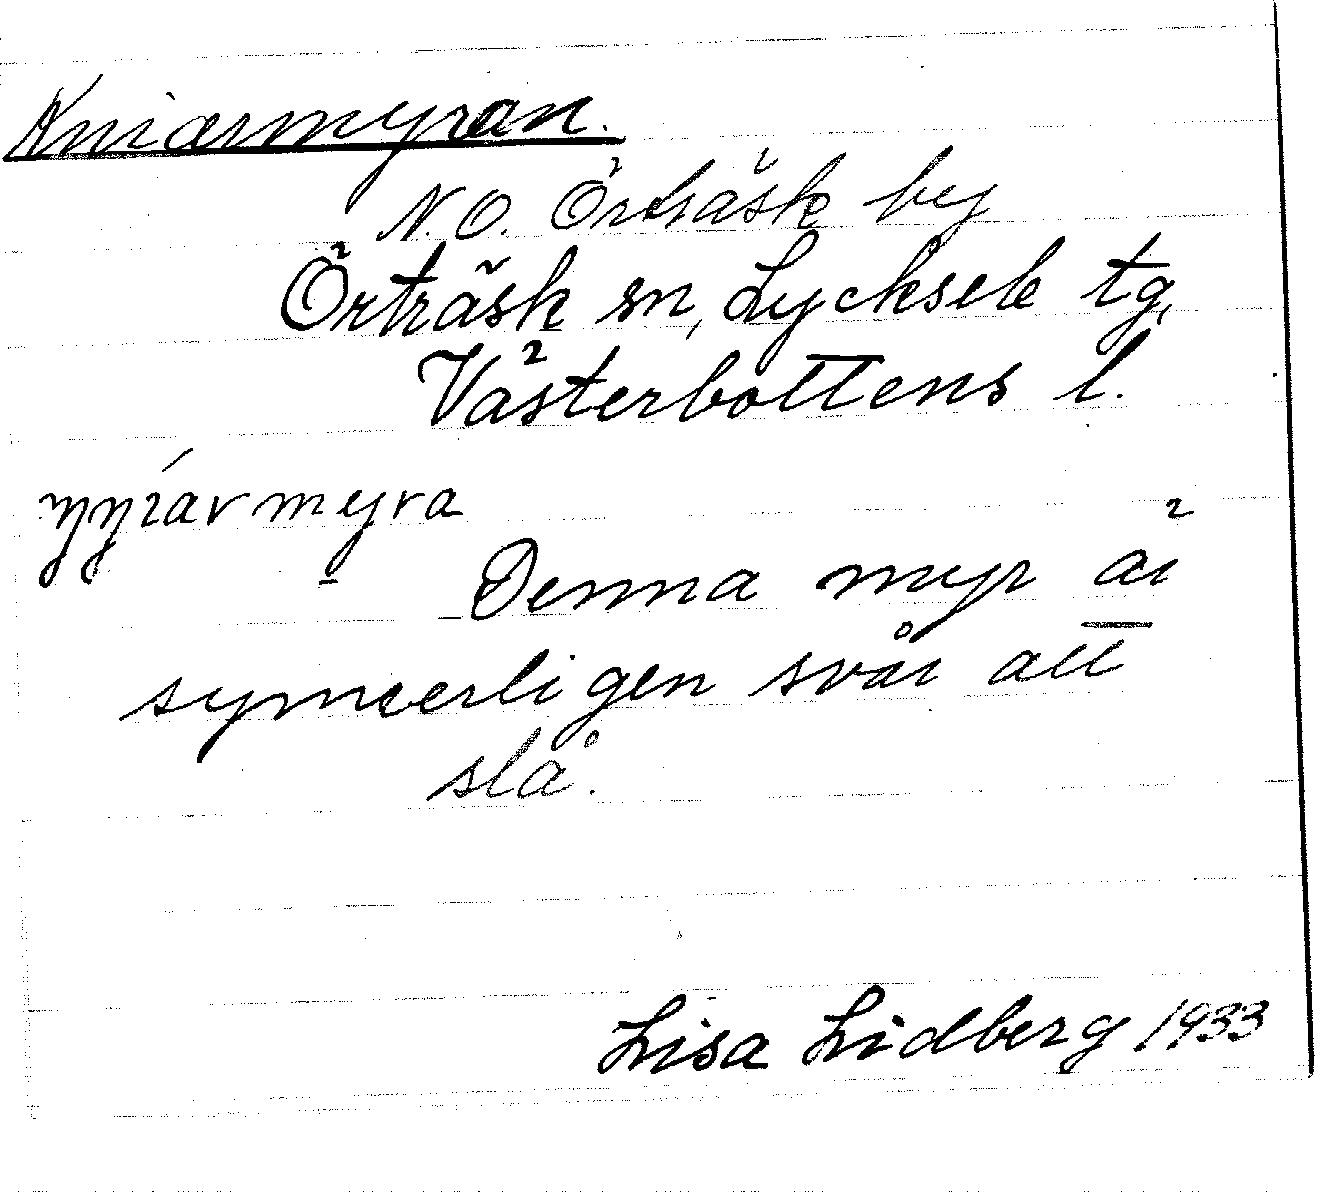 Kniarmyran.
N.O. Örträsk by
Örträsk sn, Lycksele tg,
Västerbottens l.
ŋŋiarmyra
Denna myr är
synnerligen svår att
slå.
Lisa Lidberg 1933